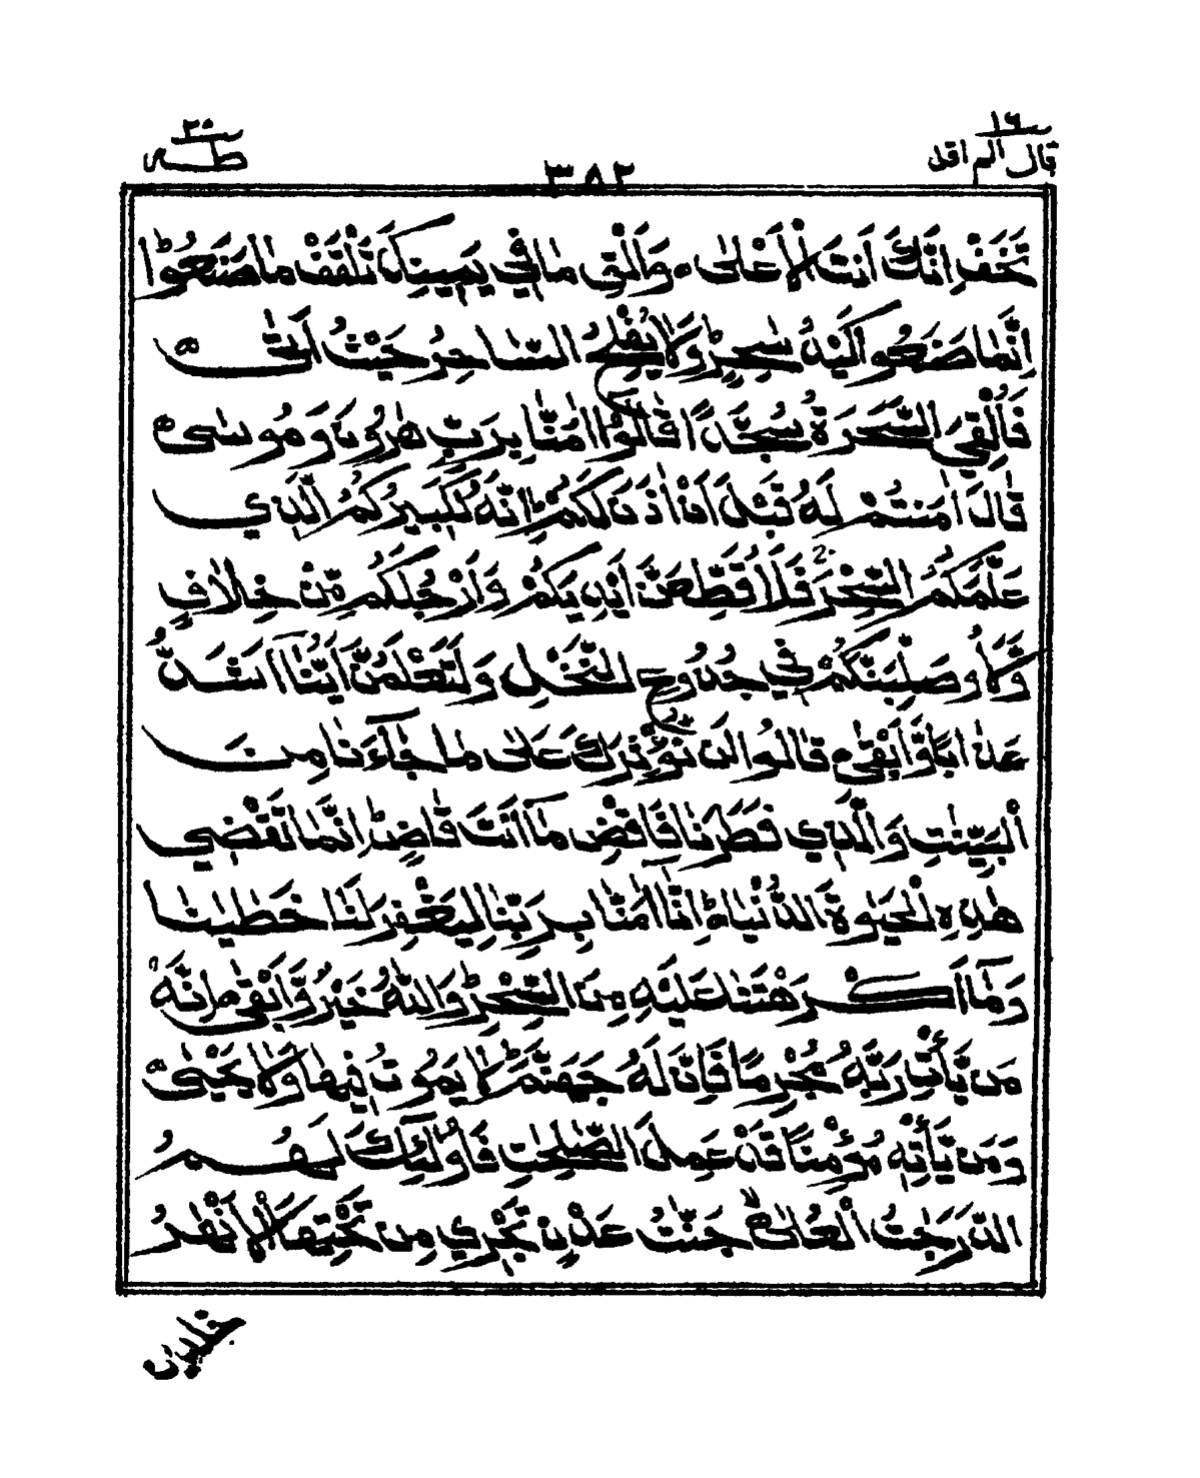 قال الم اقل ١٦
٣٨٢
طه ٢٠
تَخَفْ اِنَّكَ اَنْتَ الْاَعْلٰى ۝ وَاَلْقِ مَا فِيْ يَمِيْنِكَ تَلْقَفْ مَا صَنَعُوْا ؕ
اِنَّمَا صَنَعُوْا كَيْدُ سٰحِرٍ ؕ وَلَا يُفْلِحُ السَّاحِرُ حَيْثُ اَتٰى ۝
فَاُلْقِيَ السَّحَرَةُ سُجَّدًا قَالُوْۤا اٰمَنَّا بِرَبِّ هٰرُوْنَ وَمُوْسٰى ۝
قَالَ اٰمَنْتُمْ لَهٗ قَبْلَ اَنْ اٰذَنَ لَكُمْ ؕ اِنَّهٗ لَكَبِيْرُكُمُ الَّذِيْ
عَلَّمَكُمُ السِّحْرَ ۚ فَلَاُقَطِّعَنَّ اَيْدِيَكُمْ وَاَرْجُلَكُمْ مِّنْ خِلَافٍ
وَّلَاُوصَلِّبَنَّكُمْ فِيْ جُذُوْعِ النَّخْلِ وَلَتَعْلَمُنَّ اَيُّنَاۤ اَشَدُّ
عَذَابًا وَّاَبْقٰى ۝ قَالُوْا لَنْ نُّؤْثِرَكَ عَلٰى مَا جَآءَنَا مِنَ
الْبَيِّنٰتِ وَالَّذِيْ فَطَرَنَا فَاقْضِ مَاۤ اَنْتَ قَاضٍ ؕ اِنَّمَا تَقْضِيْ
هٰذِهِ الْحَيٰوةَ الدُّنْيَا ؕ اِنَّاۤ اٰمَنَّا بِرَبِّنَا لِيَغْفِرَ لَنَا خَطٰيٰنَا
وَمَاۤ اَكْرَهْتَنَا عَلَيْهِ مِنَ السِّحْرِ ؕ وَاللّٰهُ خَيْرٌ وَّاَبْقٰى ۝ اِنَّهٗ
مَنْ يَّأْتِ رَبَّهٗ مُجْرِمًا فَاِنَّ لَهٗ جَهَنَّمَ ؕ لَا يَمُوْتُ فِيْهَا وَلَا يَحْيٰى ۝
وَمَنْ يَّأْتِهٖ مُؤْمِنًا قَدْ عَمِلَ الصّٰلِحٰتِ فَاُولٰٓئِكَ لَهُمُ
الدَّرَجٰتُ الْعُلٰى ۝ جَنّٰتُ عَدْنٍ تَجْرِيْ مِنْ تَحْتِهَا الْاَنْهٰرُ
خٰلِدِيْنَ